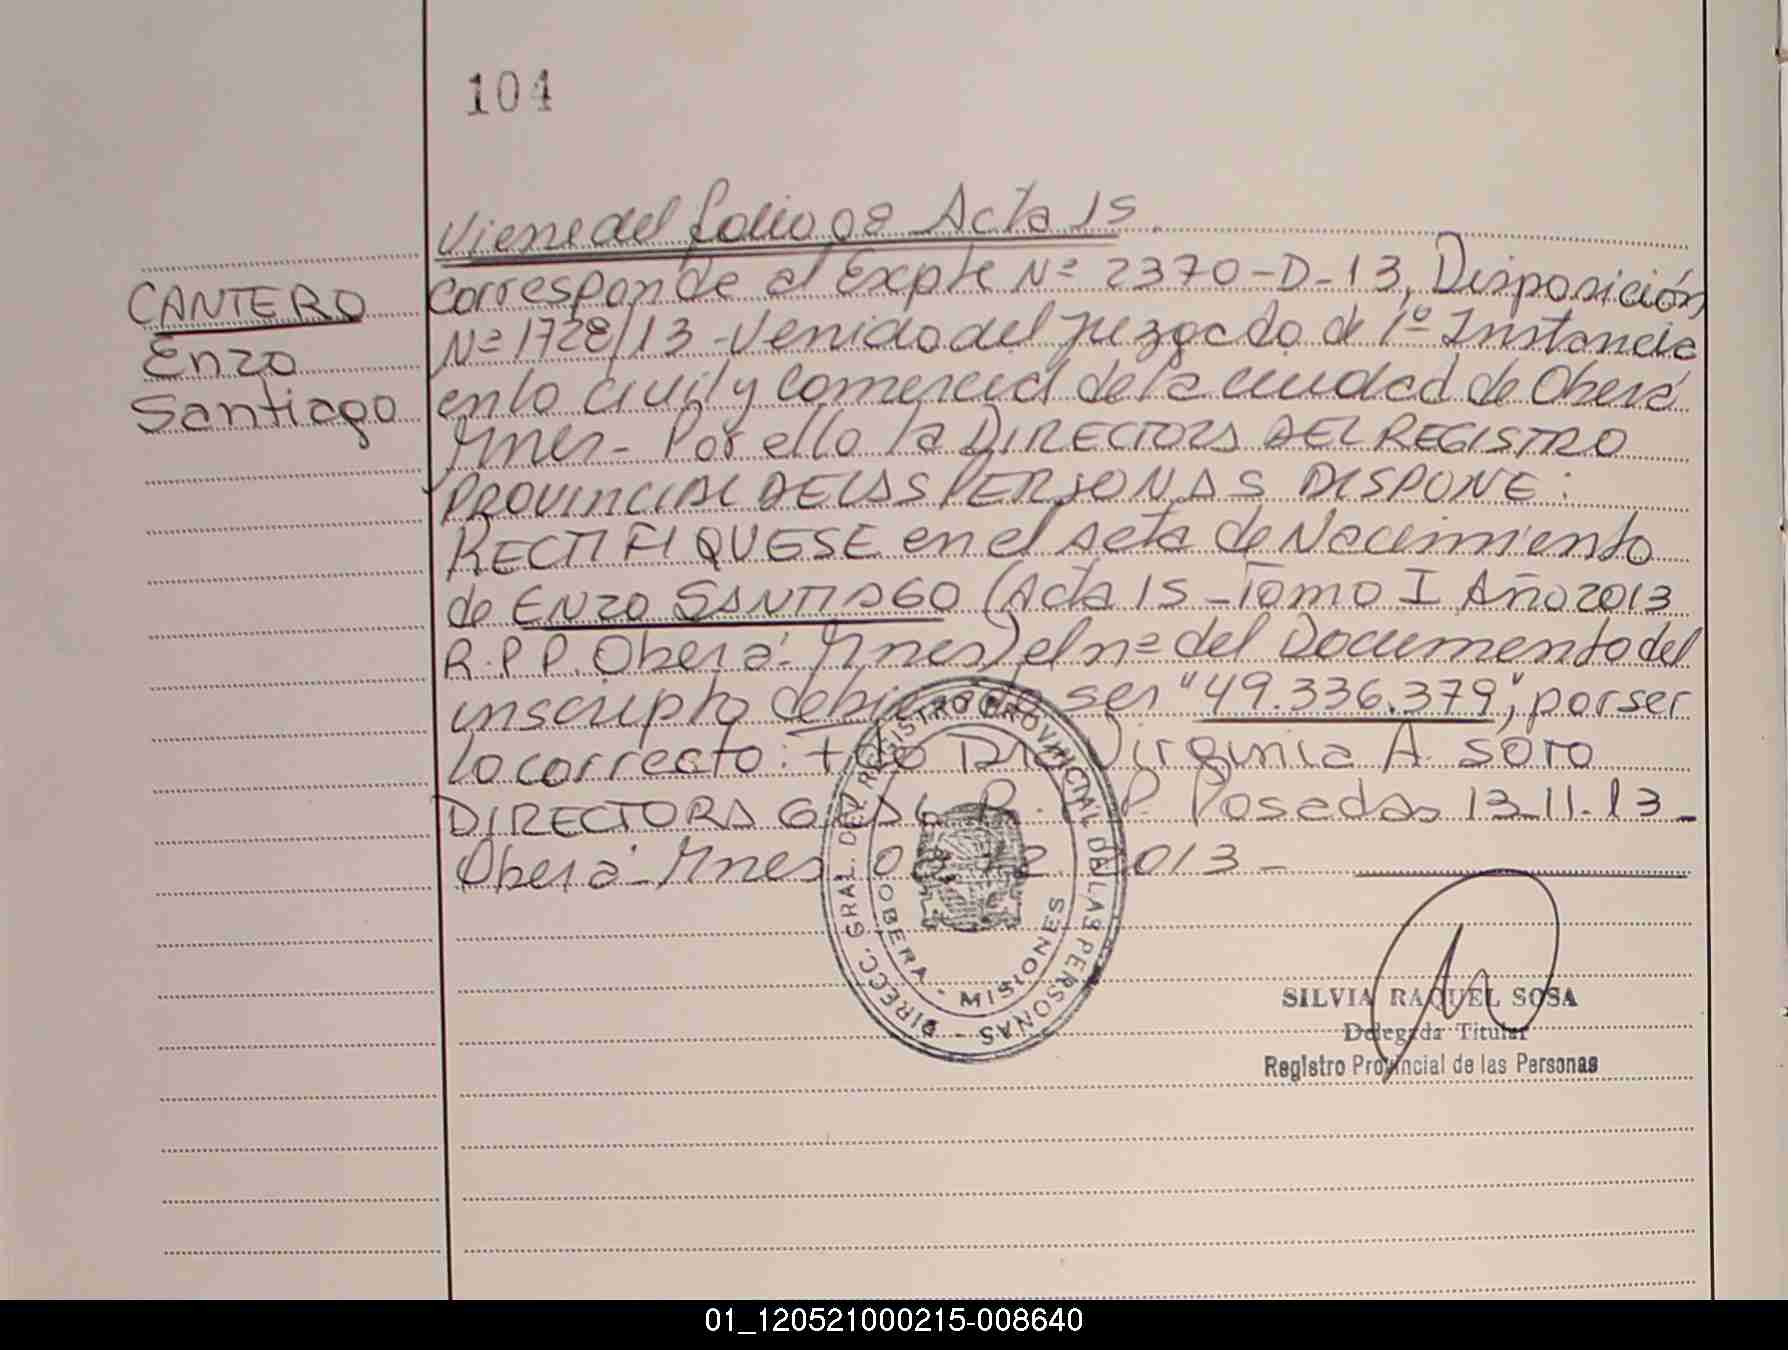 104
Viene del folio 08 Acta 15.
CANTERO
Enzo
Santiago
Corresponde al Expte Nº 2370-D-13, Disposición
Nº 1728/13 - Venido del Juzgado de 1º Instancia
en lo Civil y Comercial de la ciudad de Oberá
Mnes - Por ello la DIRECTORA DEL REGISTRO
PROVINCIAL DE LAS PERSONAS DISPONE:
RECTIFIQUESE en el acta de Nacimiento
de ENZO SANTIAGO (Acta 15 - Tomo I Año 2013
R.P.P. Oberá - Mnes) el nº del Documento del
inscripto debiendo ser "49.336.379", por ser
lo correcto: fdo Dra Virginia A. Soto
DIRECTORA GRAL R.P.P. Posadas 13-11-13-
Oberá - Mnes 2013 -
DIRECC. GRAL. DEL REGISTRO PROVINCIAL DE LAS PERSONAS -
OBERA - MISIONES
SILVIA RAQUEL SOSA
Delegada Titular
Registro Provincial de las Personas
01_120521000215-008640